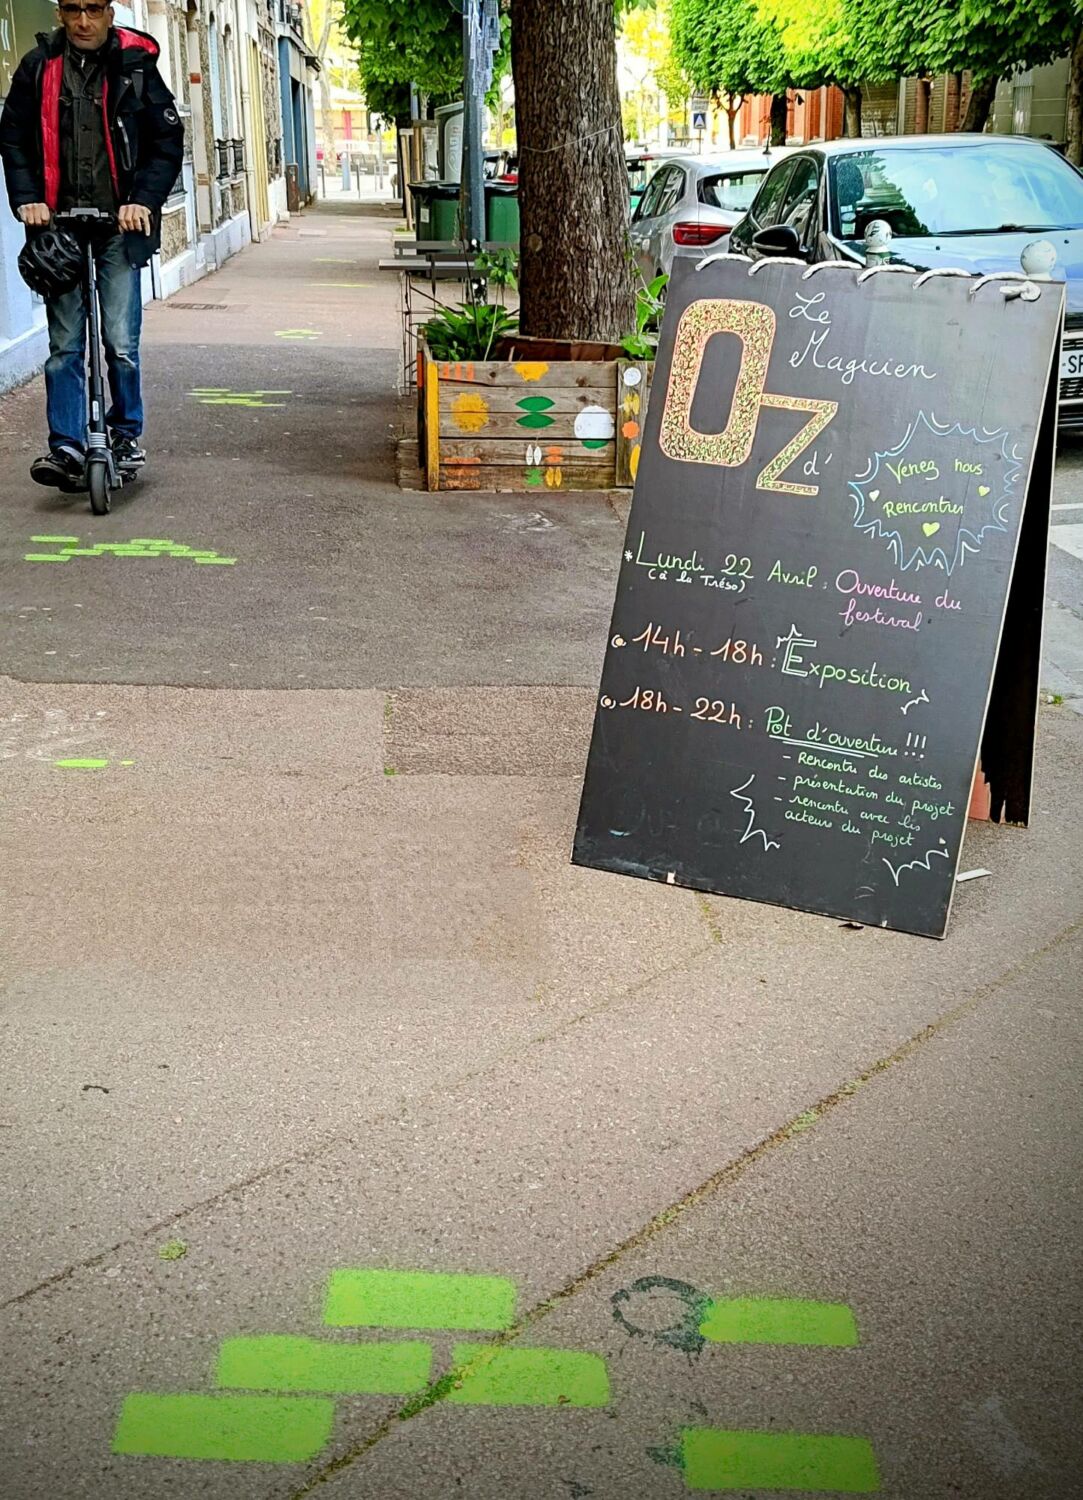 Le
Magicien
d'
OZ
Venez nous
Rencontrer
* Lundi 22 Avril : Ouverture du
(à la Tréso)
festival
14h - 18h : Exposition
18h - 22h : Pot d'ouverture !!!
- Rencontre des artistes
- présentation du projet
- rencontre avec les
acteurs du projet